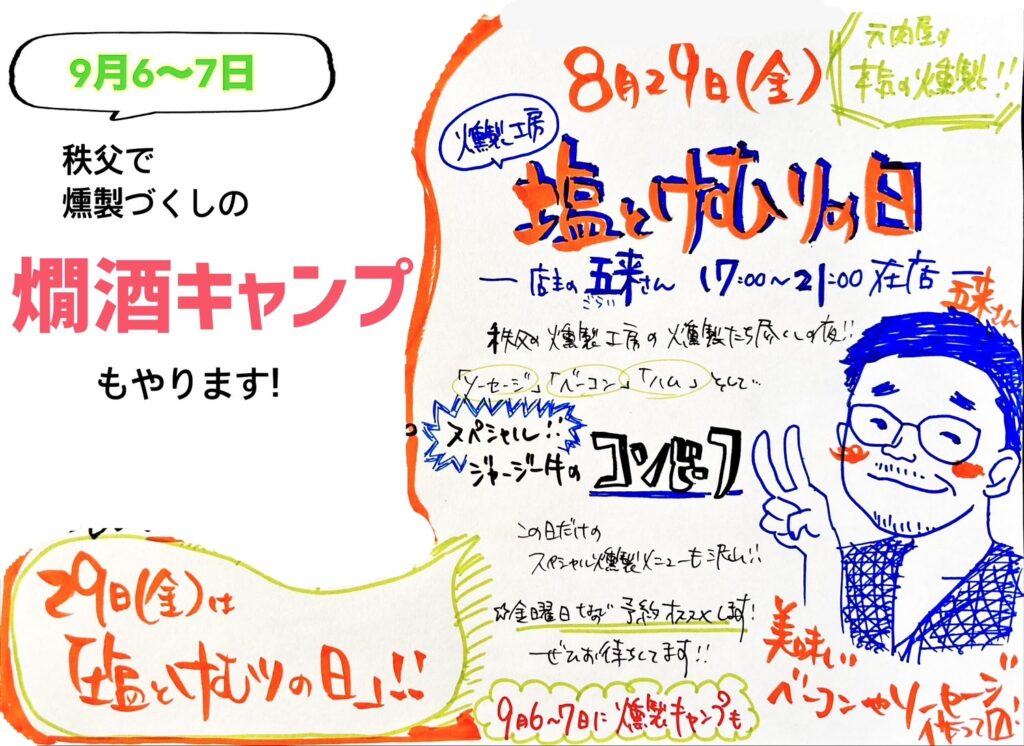 9月6〜7日
秩父で
燻製づくしの
燗酒キャンプ
もやります!
29日(金)は
「塩とけむりの日」!!
8月29日(金)
元肉屋の
本気の燻製!!
燻製工房
塩とけむりの日
ー店主の五来さん 17:00〜21:00 在店ー
ごらい
五来さん
秩父の燻製工房の燻製たち尽くしの夜!!
「ソーセージ」「ベーコン」「ハム」そして…
スペシャル!!
ジャージー牛の
コンビーフ
この日だけの
スペシャル燻製メニューも沢山!!
☆金曜日なので予約オススメします!
ぜひお待ちしてます!!
9月6〜7日に燻製キャンプも
美味しい
ベーコンやソーセージ
作って